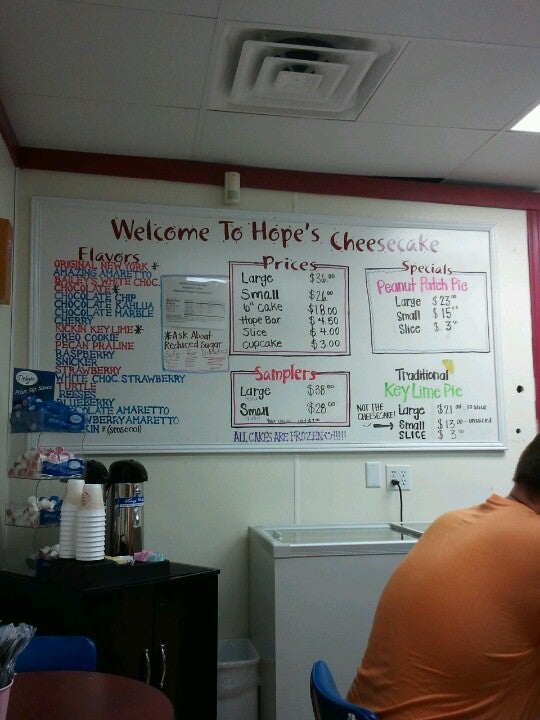 Welcome To Hope's Cheesecake
Flavors
ORIGINAL NEW YORK *
AMAZING AMARETTO
BAILEY'S WHITE CHOC.
CHOCOLATE *
CHOCOLATE CHIP
CHOCOLATE KAHLUA
CHOCOLATE MARBLE
CHERRY
KICKIN KEY LIME *
OREO COOKIE
PECAN PRALINE
RASPBERRY
SNICKER
STRAWBERRY
WHITE CHOC. STRAWBERRY
TURTLE
REESES
BLUEBERRY
OLATE AMARETTO
WBERRY AMARETTO
KIN * (seasonal)
* Ask About
Reduced Sugar
Safe for Diabetics
Prices
Large $36.00
Small $26.00
6" Cake $18.00
Hope Bar $4.50
Slice $4.00
Cupcake $3.00
Samplers
Large $38.00
Small $28.00
ALL CAKES ARE FROZEN!!!!!!
Specials
Peanut Patch Pie
Large $23.00
Small $15.00
Slice $3.00
Traditional
Key Lime Pie
NOT THE CHEESECAKE!
Large $21.00
Small $13.00 - unsliced
SLICE $3.00